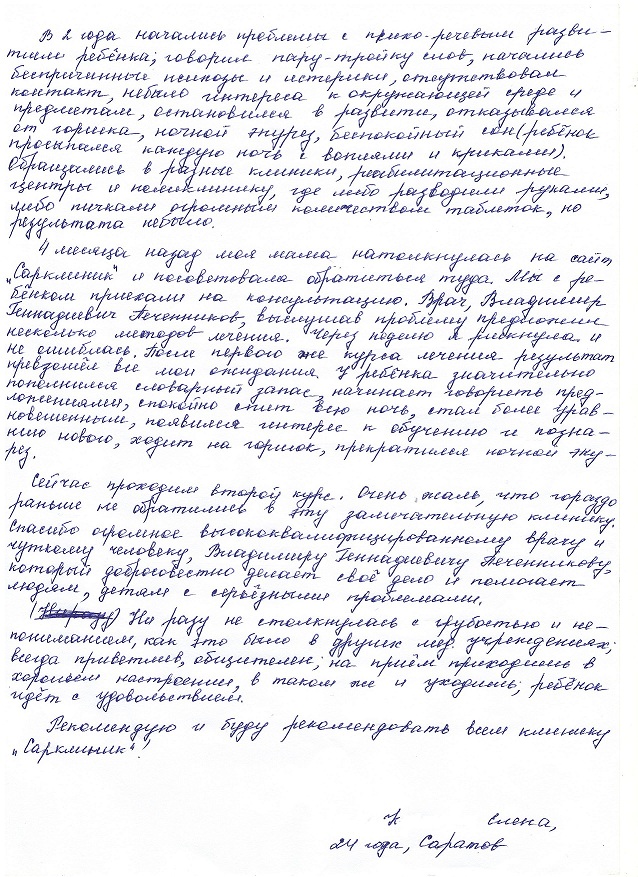 В 2 года начались проблемы с психо-речевым разви-
тием ребёнка; говорил пару-тройку слов, начались
беспричинные психозы и истерики, отсутствовал
контакт, небыло интереса к окружающей среде и
предметам, остановился в развитии, отказывался
от горшка, ночной энурез, беспокойный сон (ребёнок
просыпался каждую ночь с воплями и криками).
Обращались в разные клиники, реабилитационные
центры и поликлинику, где либо разводили руками,
либо пичкали огромным количеством таблеток, но
результата небыло.
4 месяца назад моя мама натолкнулась на сайт
„Сарклиник" и посоветовала обратиться туда. Мы с ре-
бёнком приехали на консультацию. Врач, Владимир
Геннадиевич Печенников, выслушав проблему предложил
несколько методов лечения. Через неделю я рискнула и
не ошиблась. После первого же курса лечения результат
превзошёл все мои ожидания. У ребёнка значительно
пополнился словарный запас, начинает говорить пред-
ложениями, спокойно спит всю ночь, стал более урав-
новешенным, появился интерес к обучению и позна-
нию нового, ходит на горшок, прекратился ночной эну-
рез.
Сейчас проходим второй курс. Очень жаль, что гораздо
раньше не обратились в эту замечательную клинику.
Спасибо огромное высококвалифицированному врачу и
чуткому человеку, Владимиру Геннадиевичу Печенникову,
который добросовестно делает своё дело и помогает
людям, детям с серьёзными проблемами.
Ни разу не столкнулась с грубостью и не-
пониманием, как это было в других мед. учреждениях;
всегда приветлив, общителен; на приём приходишь в
хорошем настроении, в таком же и уходишь; ребёнок
идёт с удовольствием.
Рекомендую и буду рекомендовать всем клинику
„Сарклиник"!
К Елена,
24 года, Саратов